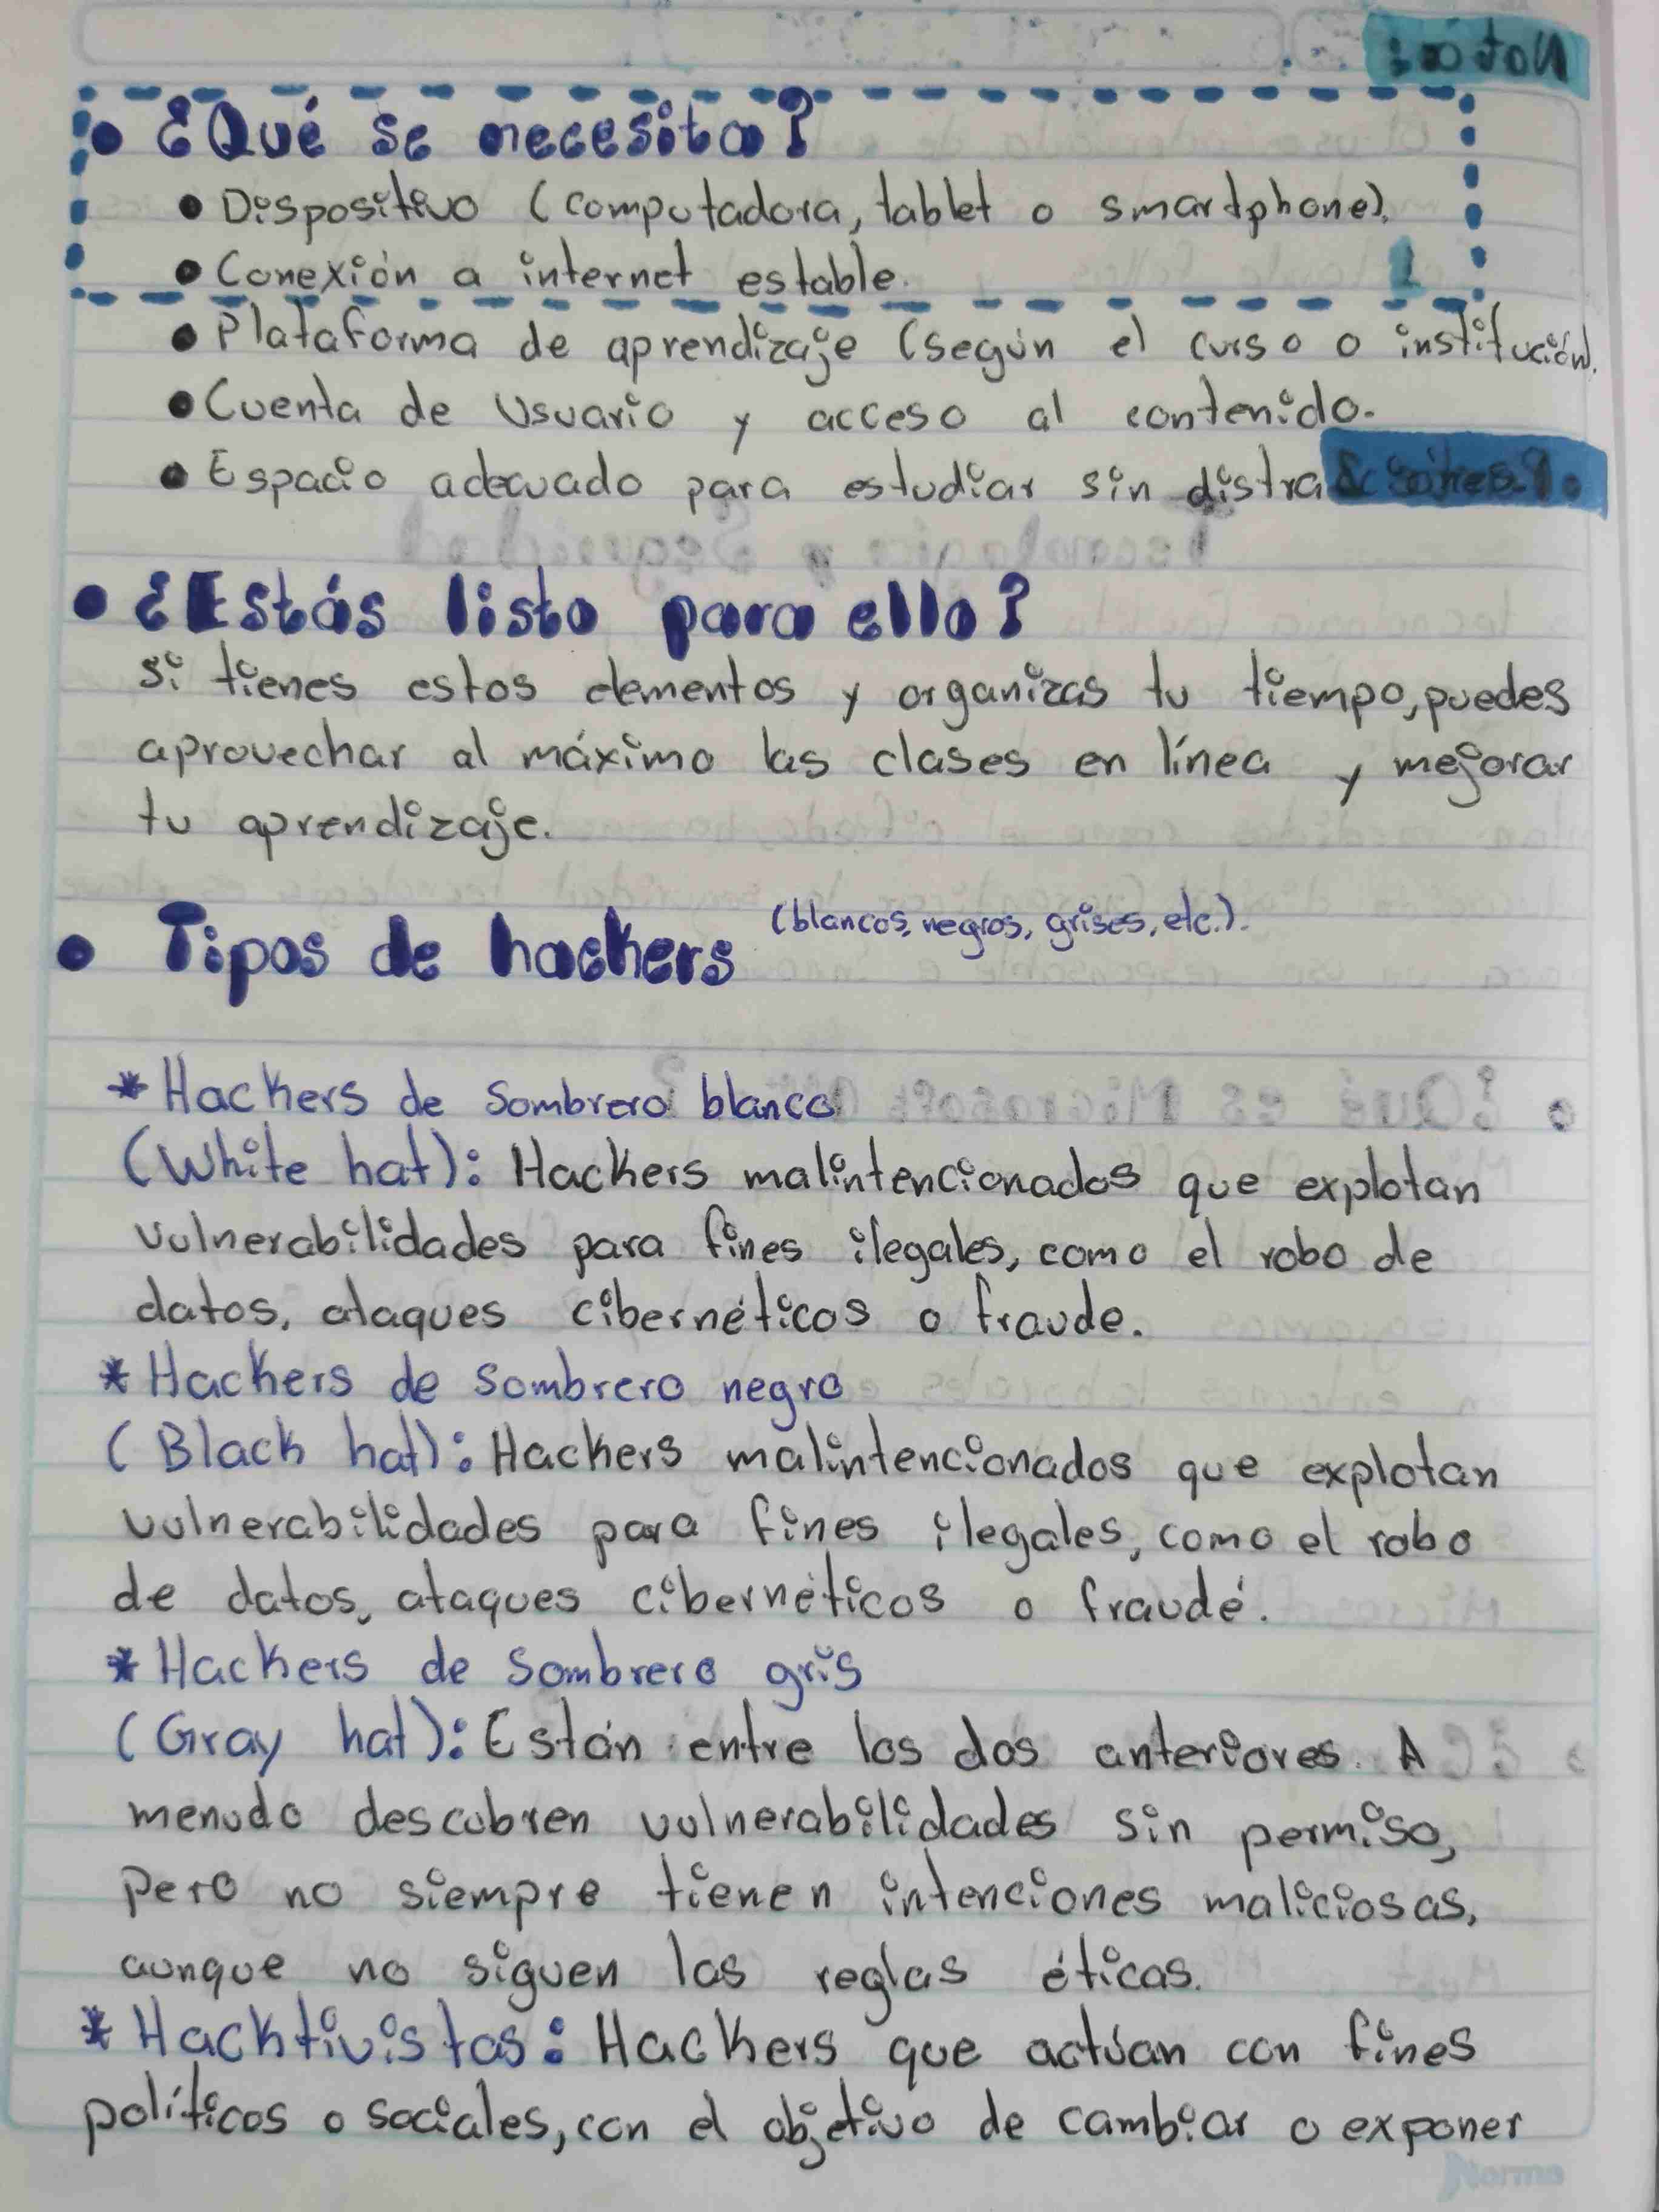 • ¿Qué se necesita?
• Dispositivo (computadora, tablet o smartphone).
• Conexión a internet estable.
• Plataforma de aprendizaje (según el curso o institución).
• Cuenta de Usuario y acceso al contenido.
• Espacio adecuado para estudiar sin distra
• ¿Estás listo para ello?
Si tienes estos elementos y organizas tu tiempo, puedes
aprovechar al máximo las clases en línea y mejorar
tu aprendizaje.
• Tipos de hackers (blancos, negros, grises, etc.).
* Hackers de Sombrero blanco
(White hat): Hackers malintencionados que explotan
vulnerabilidades para fines ilegales, como el robo de
datos, ataques cibernéticos o fraude.
* Hackers de Sombrero negro
(Black hat): Hackers malintencionados que explotan
vulnerabilidades para fines ilegales, como el robo
de datos, ataques cibernéticos o fraudé.
* Hackers de Sombrero gris
(Gray hat): Están entre los dos anteriores. A
menudo descubren vulnerabilidades sin permiso,
pero no siempre tienen intenciones maliciosas,
aunque no siguen las reglas éticas.
* Hacktivistas: Hackers que actúan con fines
políticos o sociales, con el objetivo de cambiar o exponer
Norma